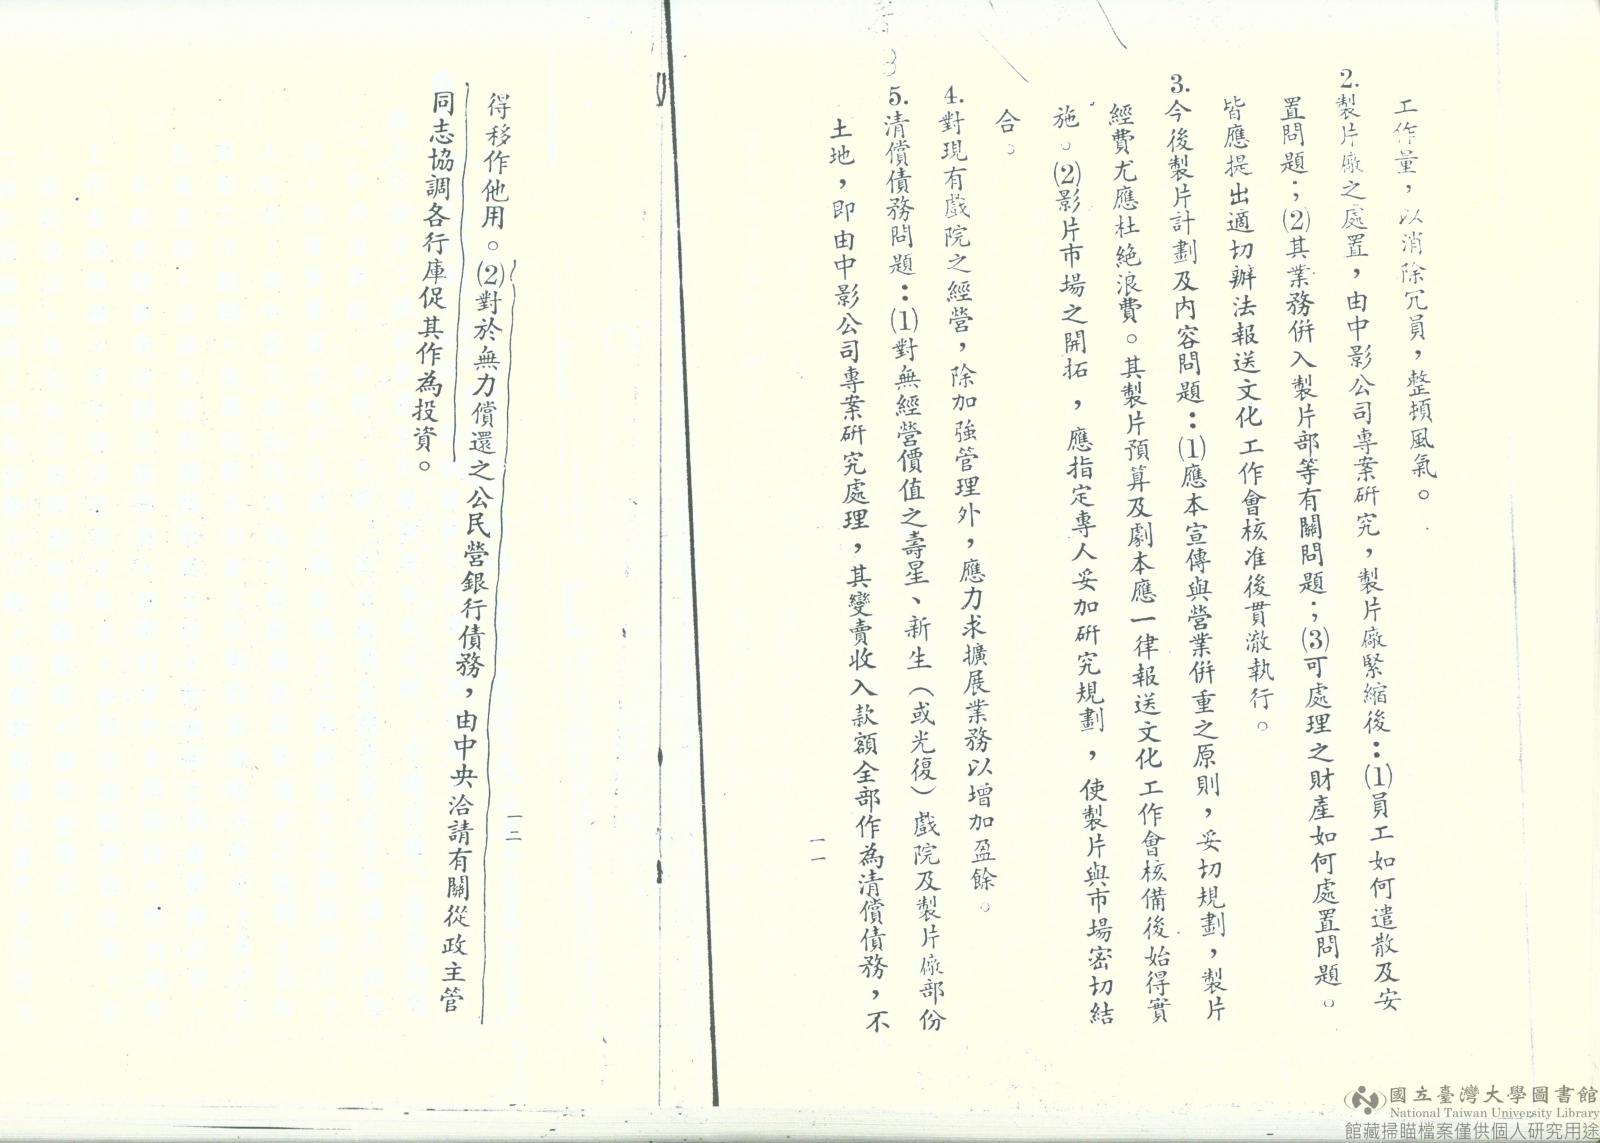 工作量，以消除冗員，整頓風氣。
2.製片廠之處置，由中影公司專案研究，製片廠緊縮後：(1)員工如何遣散及安
置問題；(2)其業務併入製片部等有關問題；(3)可處理之財產如何處置問題。
皆應提出適切辦法報送文化工作會核准後貫澈執行。
3.今後製片計劃及內容問題：(1)應本宣傳與營業併重之原則，妥切規劃，製片
經費尤應杜絕浪費。其製片預算及劇本應一律報送文化工作會核備後始得實
施。(2)影片市場之開拓，應指定專人妥加研究規劃，使製片與市場密切結
合。
4.對現有戲院之經營，除加強管理外，應力求擴展業務以增加盈餘。
5.清償債務問題：(1)對無經營價值之壽星、新生（或光復）戲院及製片廠部份
土地，即由中影公司專案研究處理，其變賣收入款額全部作為清償債務，不
一一
得移作他用。(2)對於無力償還之公民營銀行債務，由中央洽請有關從政主管
同志協調各行庫促其作為投資。
一二
國立臺灣大學圖書館
National Taiwan University Library
館藏掃瞄檔案僅供個人研究用途